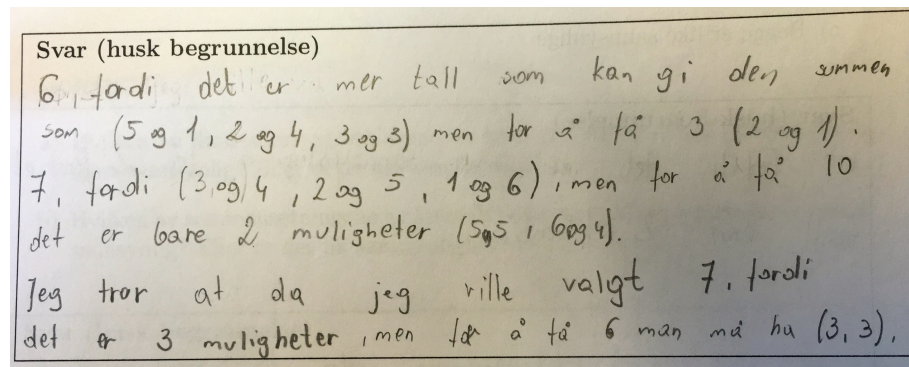 Svar (husk begrunnelse)
6, fordi det er mer tall som kan gi den summen
som (5 og 1, 2 og 4, 3 og 3) men for å få 3 (2 og 1).
7, fordi (3, og 4, 2 og 5, 1 og 6), men for å få 10
det er bare 2 muligheter (5 og 5, 6 og 4).
Jeg tror at da jeg ville valgt 7, fordi
det er 3 muligheter, men for å få 6 man må ha (3, 3),